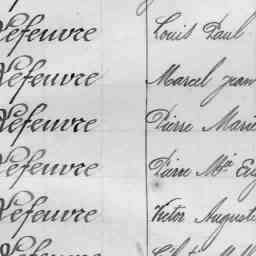 Lefeuvre Louis Paul
Lefeuvre Marcel Jean
Lefeuvre Pierre Marie
Lefeuvre Pierre Mia Eug
Lefeuvre Victor Auguste
Lefeuvre